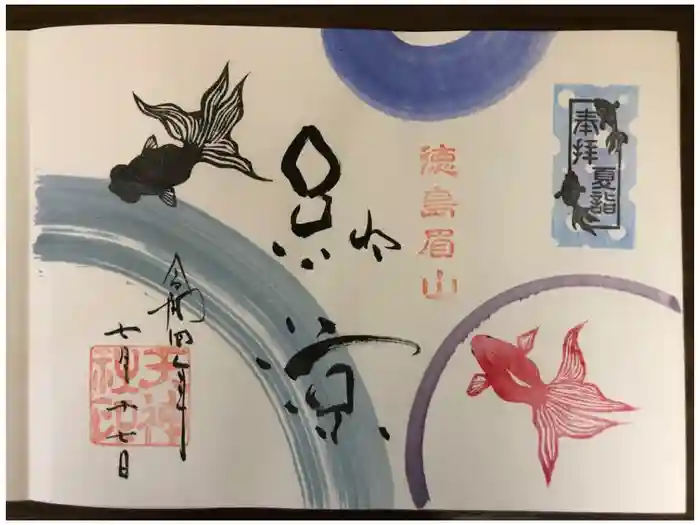 奉拝
夏詣
徳島眉山
納涼
令和四年
七月十七日
天神
社印